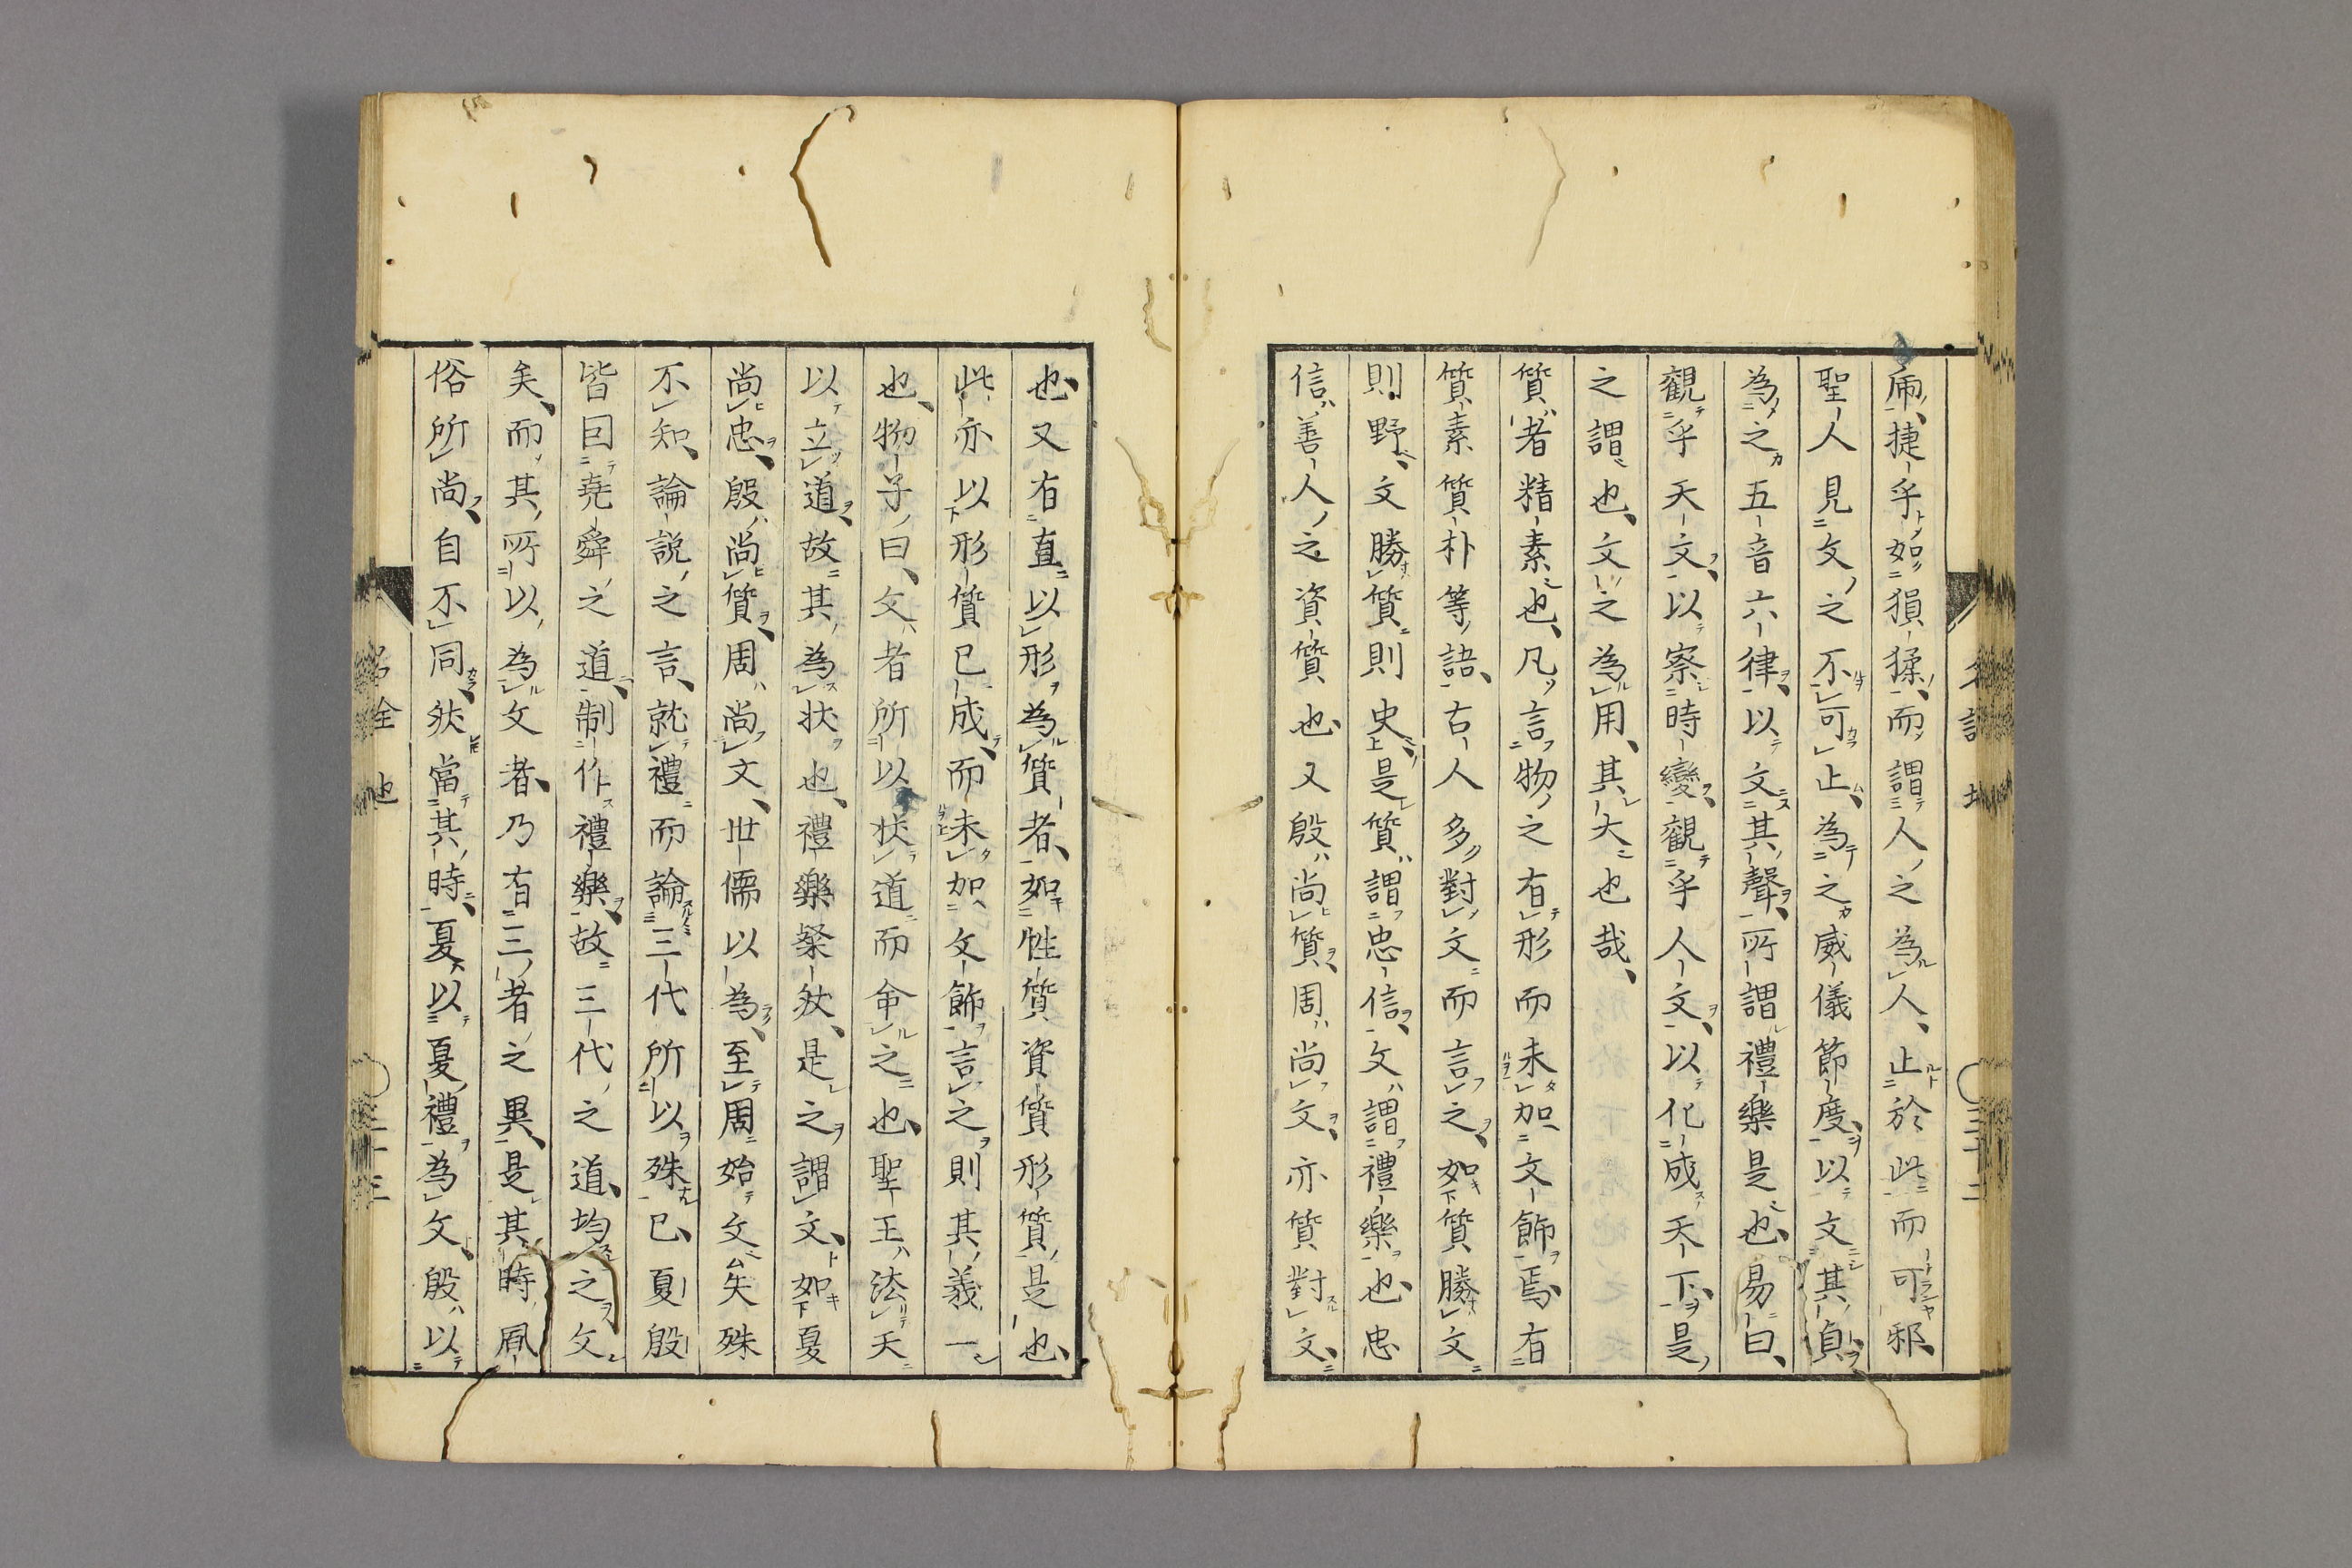 鬧捷乎如猖猱而謂人之為人止於此而可邪
聖人見文之不可止為之威儀節度以文其貞
為之五音六律以文其聲所謂禮樂是也易曰
觀乎天文以察時變觀乎人文以化成天下是
之謂也文之為用其大也哉
質者精素也凡言物之有形而未加文飾焉有
質素質朴等語古人多對文而言之如質勝文
則野文勝質則史是質謂忠信文謂禮樂也忠
信善人之資質也又殷尚質周尚文亦質對文
也又有直以形為質者如牲質資質形質是也
此亦以形質已成而未加文飾言之則其義一
也物子曰文者所以狀道而命之也聖王法天
以立道故其為狀也禮樂粲然是之謂文如夏
尚忠殷尚質周尚文世儒以為至周始文矣殊
不知論說之言就禮而論三代所以殊已夏殷
皆因堯舜之道制作禮樂故三代之道均之文
矣而其所以為文者乃有三者之異是其時風
俗所尚自不同然當其時夏以夏禮為文殷以